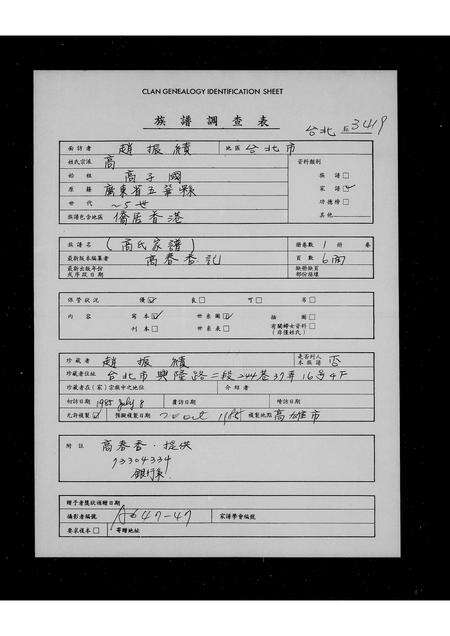 CLAN GENEALOGY IDENTIFICATION SHEET
族譜調查表
台北 3419
面訪者 趙振績 地區 台北市
姓氏宗派 高 資料類別
始祖 高子國 族譜□
原籍 廣東省五華縣 家譜☑
世代 ~5世 功德榜□
族譜包含地區 僑居香港 其他
族譜名 (高氏家譜) 冊卷數 1 冊 卷
最新版本編集者 高春香記 頁數 6
最新出版年份或序跋日期 缺冊缺頁部份殘壞
保管狀況 優☑ 良□ 可□ 劣□
內容 寫本☑ 世系圖☑ 插圖□
刊本□ 世系表□ 有關婦女資料□(非僅姓氏)
珍藏者 趙振績 是否列入本族譜 否
珍藏者住址 台北市興隆路二段244巷37弄16号4F
珍藏者在(家)宗族中之地位 介紹者
初訪日期 1985 July 8 廣訪日期 陸訪日期
允許複製☑ 預擬複製日期 20 oct 1985 複製地點 高雄市
附註 高春香.提供
73304334
贈予者獎狀捐贈日期
攝影者編號 A647-47 家譜學會編號
要求複本□ 寄贈地址